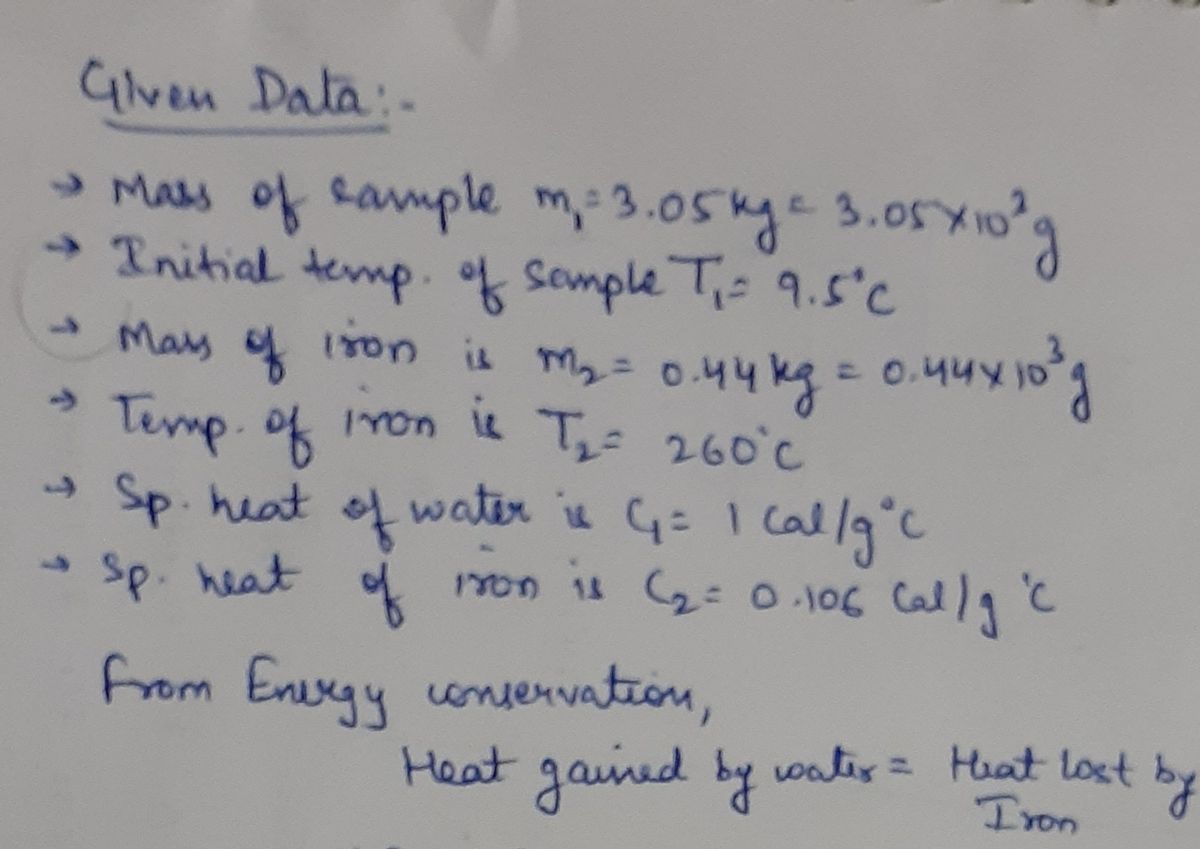 Given Data:-
→ Mass of sample m₁=3.05 kg = 3.05×10³g
→ Initial temp. of Sample T₁= 9.5°C
→ Mass of iron is m₂= 0.44 kg = 0.44×10³g
→ Temp. of iron is T₂= 260°C
→ Sp. heat of water is C₁= 1 Cal/g°C
→ Sp. heat of iron is C₂= 0.106 Cal/g °C
from Energy conservation,
Heat gained by water = Heat lost by
Iron